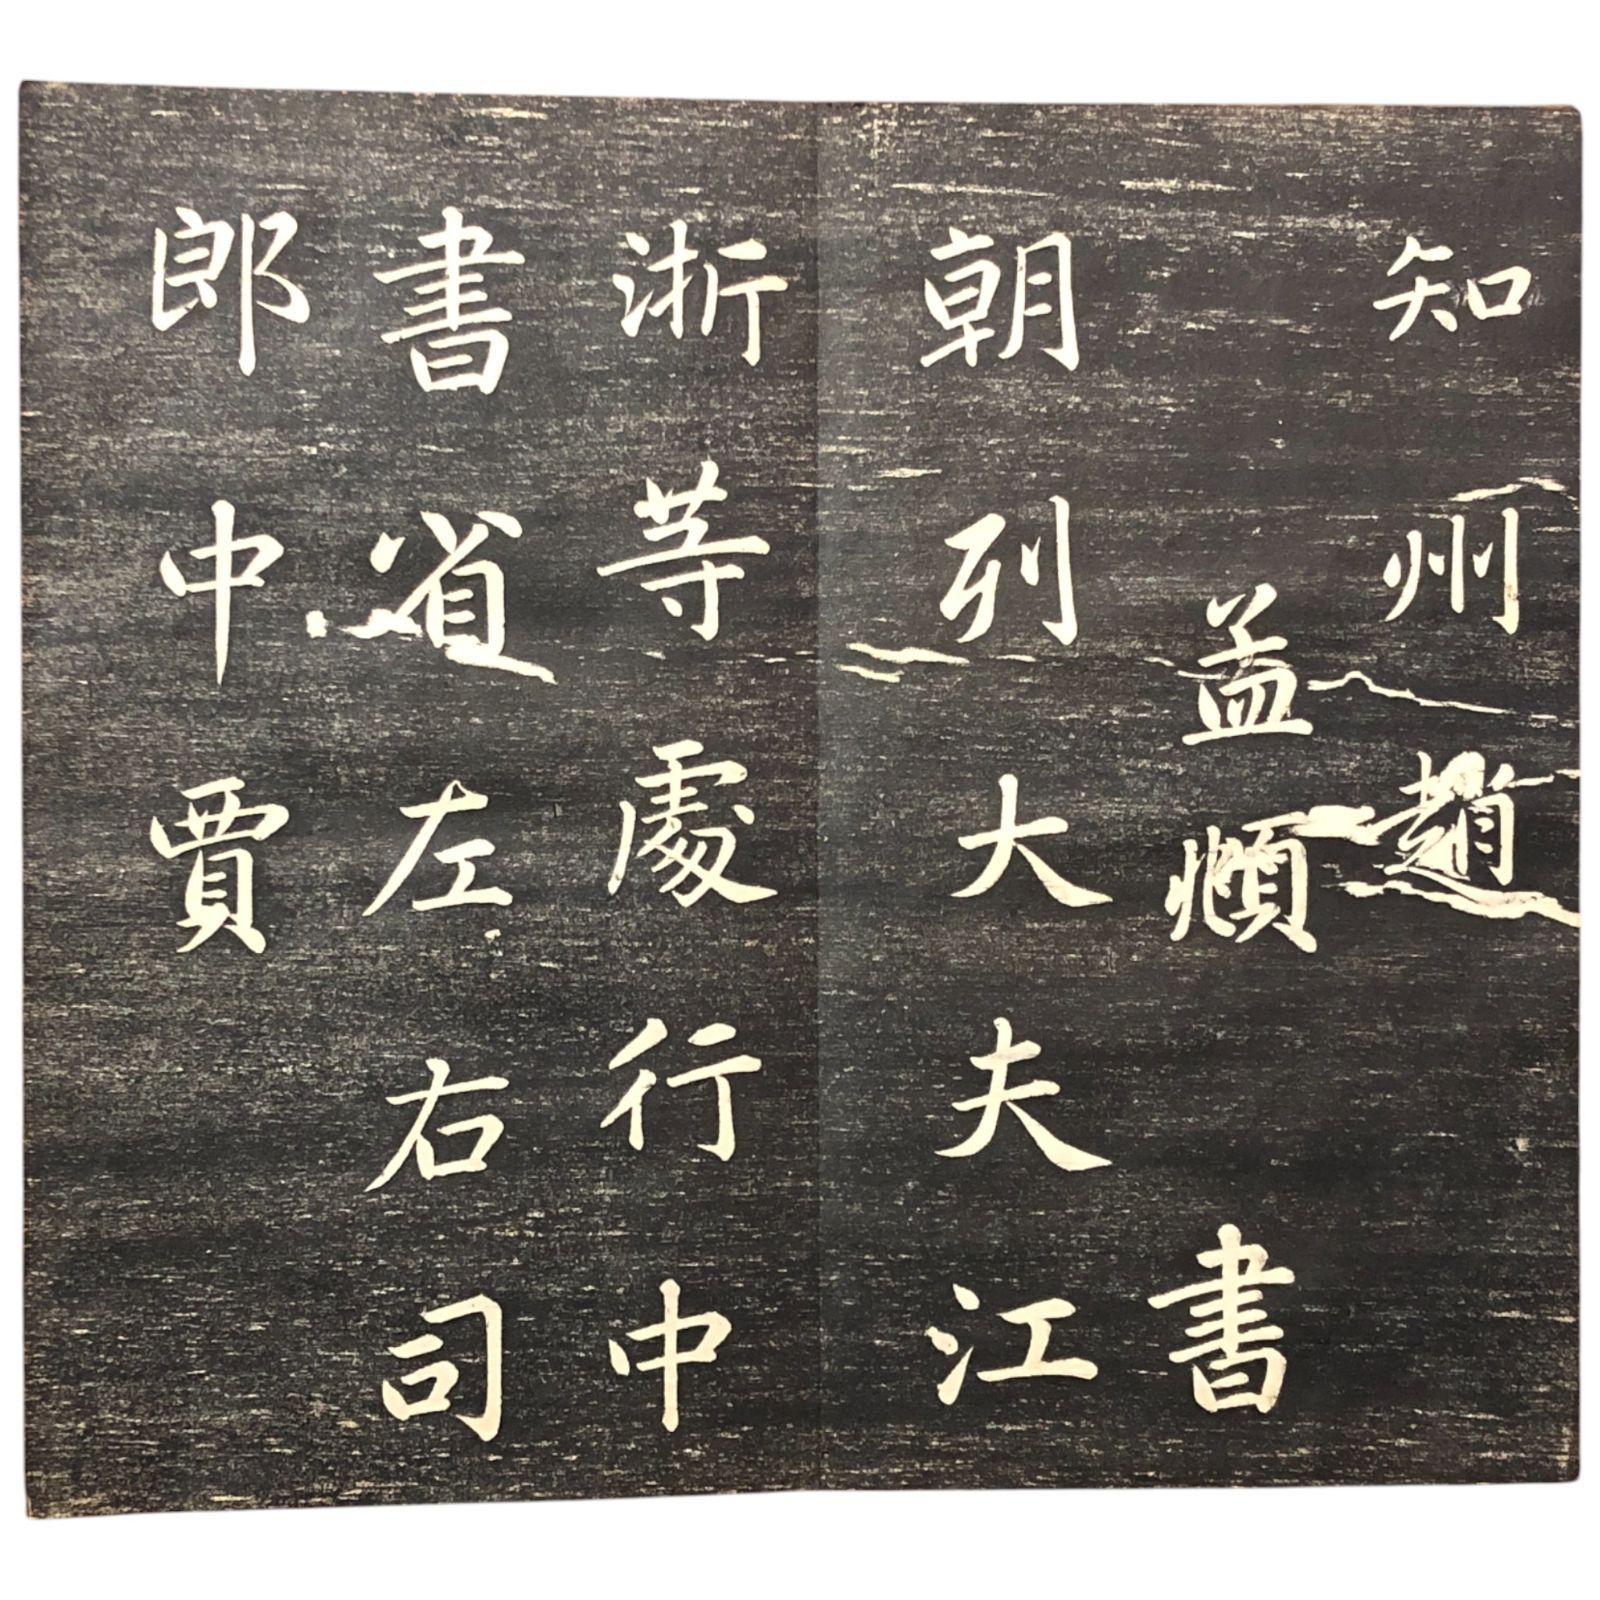 知州趙
孟頫書
朝列大夫江
浙等處行中
書省左右司
郎中賈